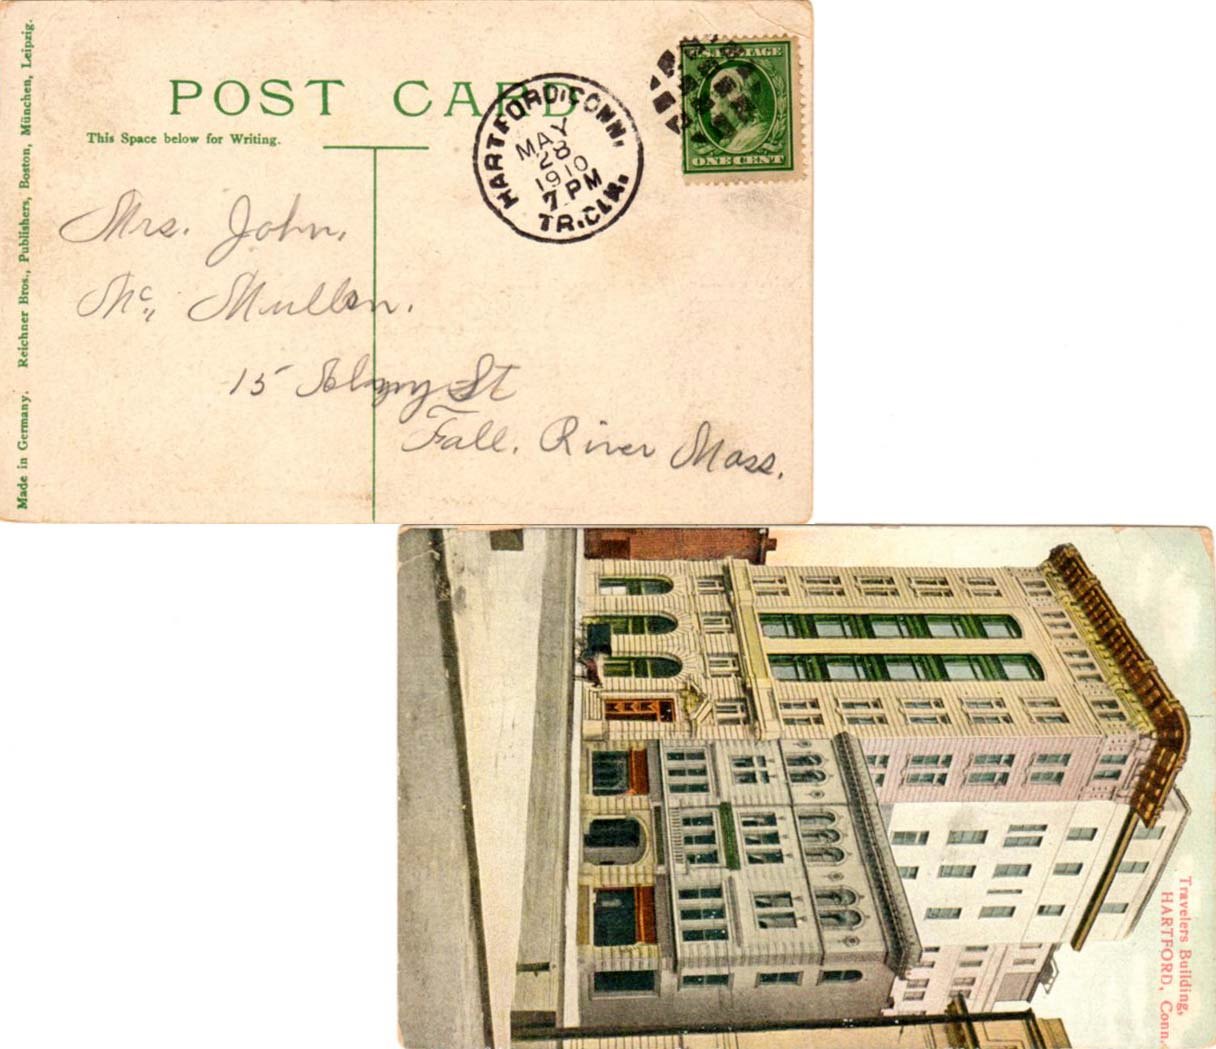 POST CARD
This Space below for Writing.
Made in Germany. Reichner Bros., Publishers, Boston, München, Leipzig.
HARTFORD, CONN.
MAY
28
1910
7 PM
TR. CLK.
U.S. POSTAGE
ONE CENT
Mrs. John.
Mc. Mullen.
15 St
Fall. River Mass.
Travelers Building,
HARTFORD, Conn.